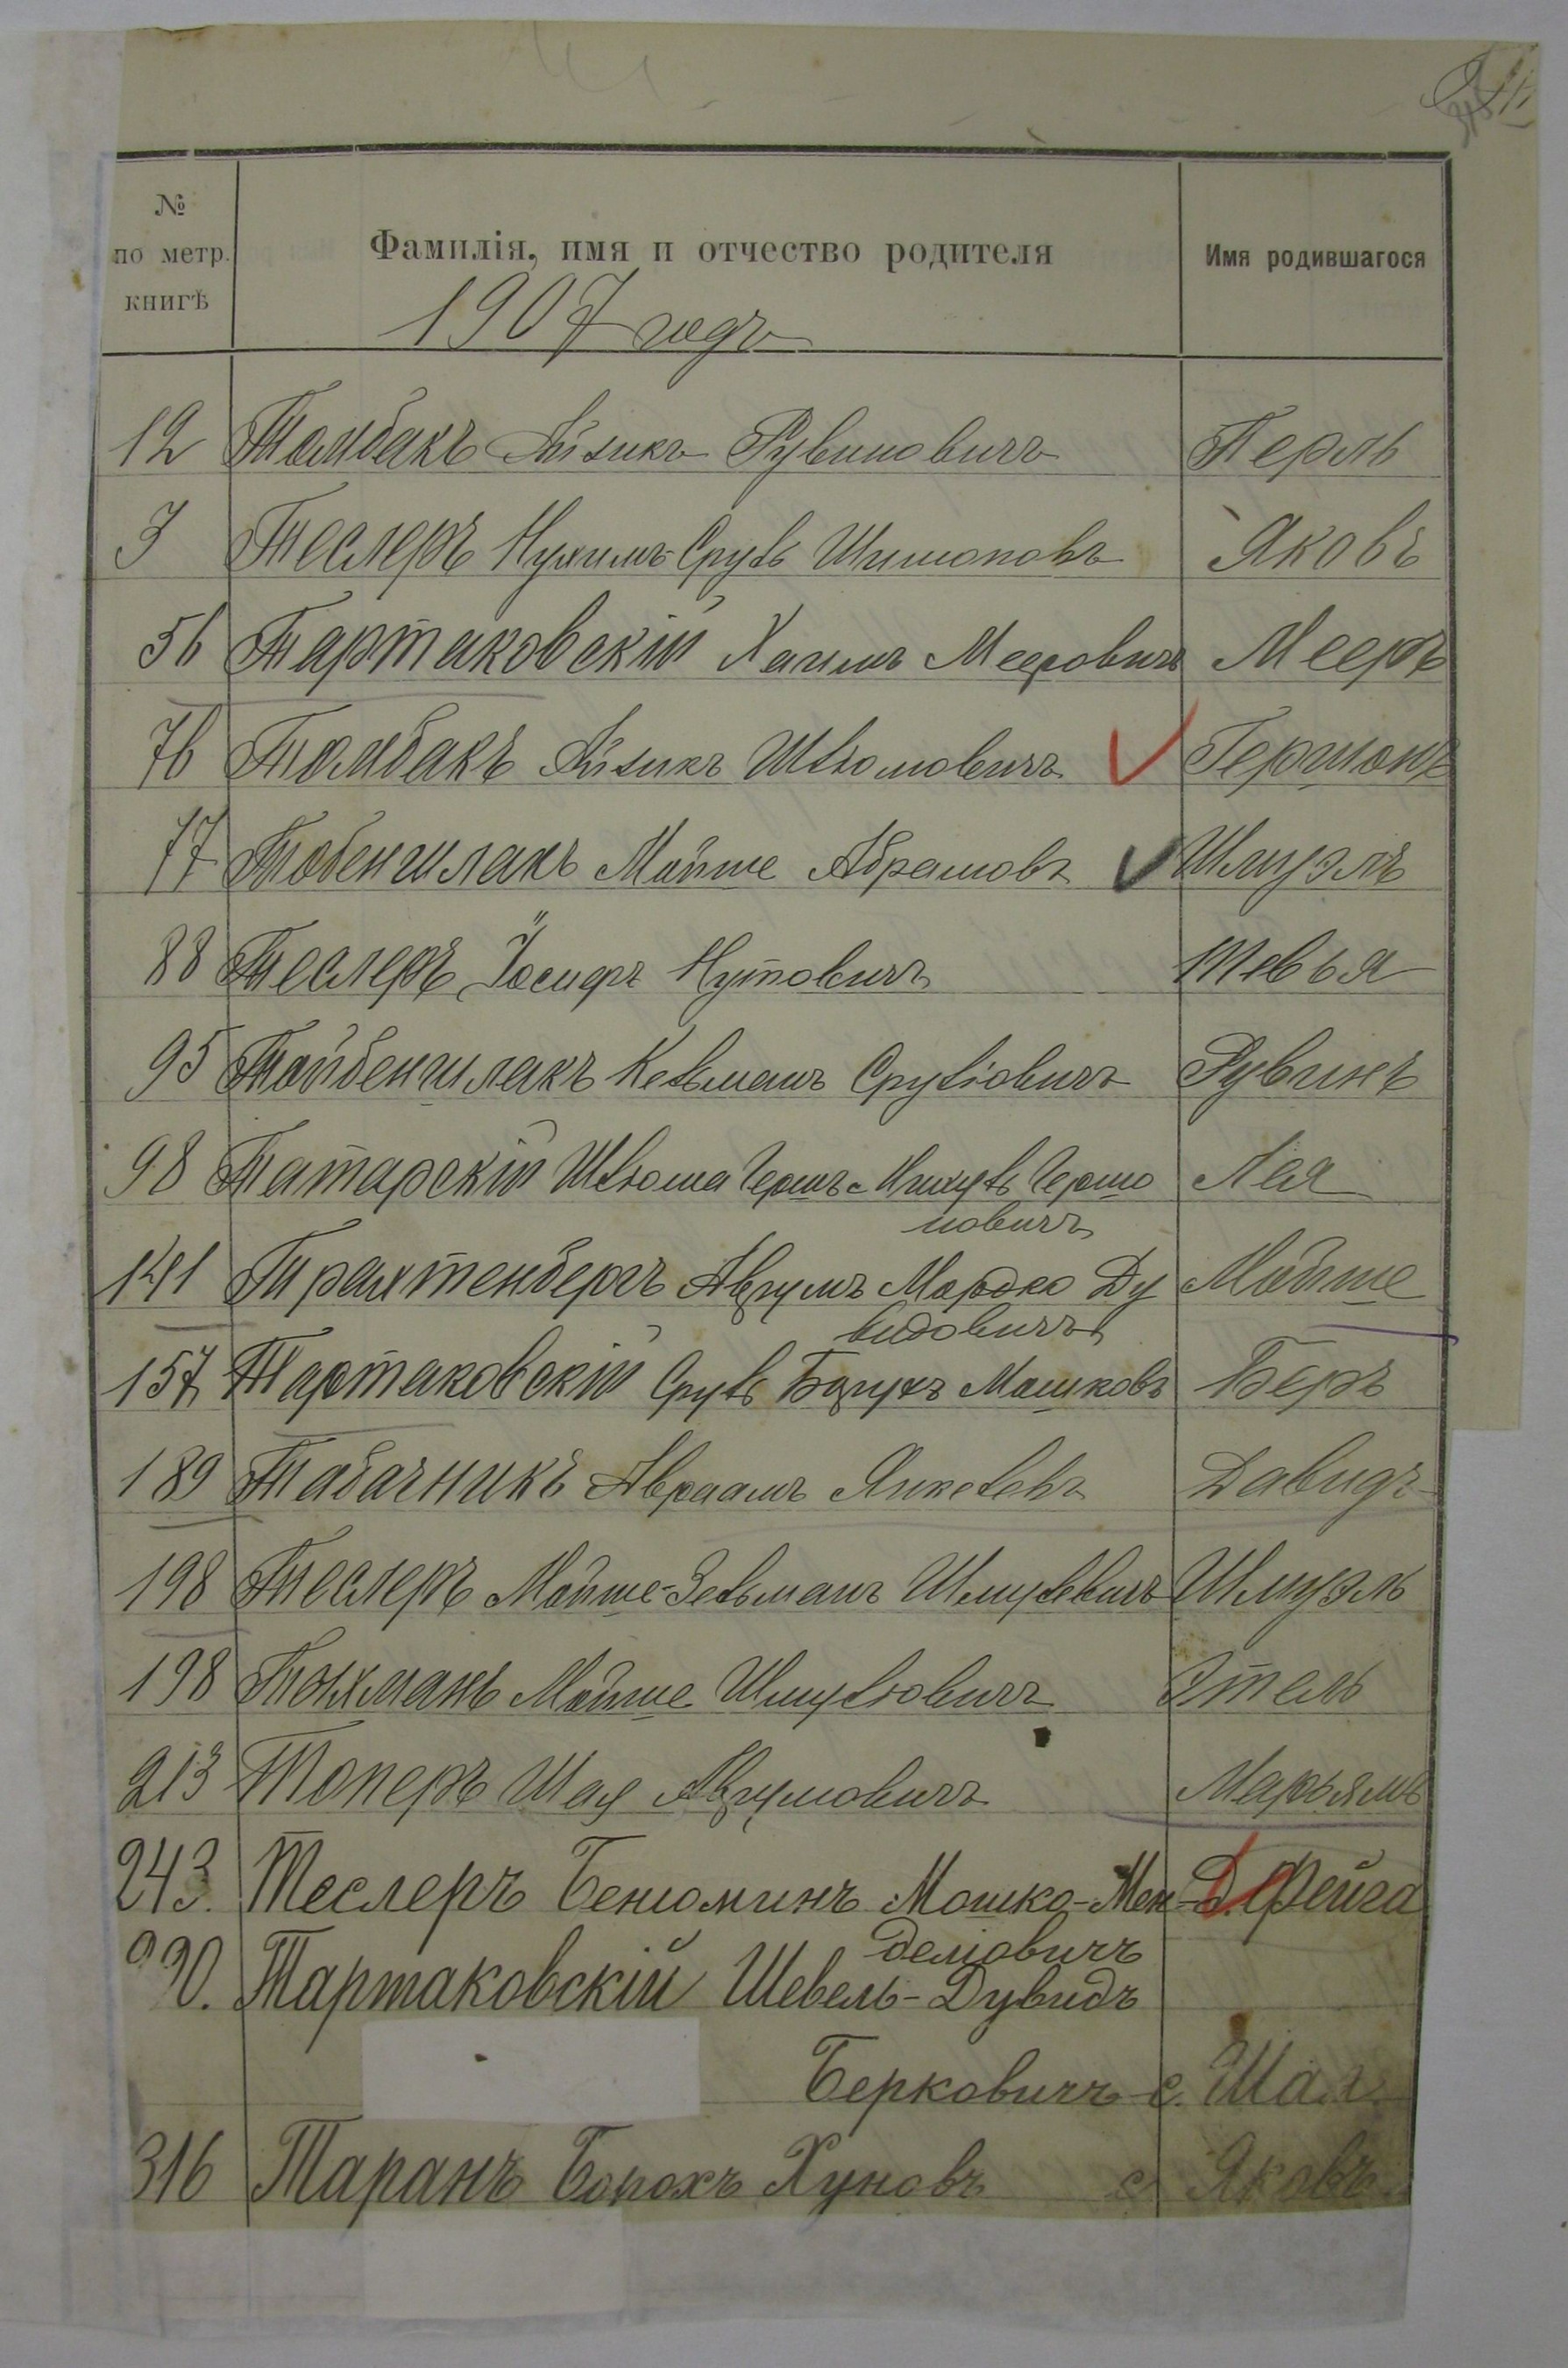 № по метр. книгѣ Фамилія, имя и отчество родителя Имя родившагося
1907 годъ
12 Томбакъ Айзикъ Рувиновичъ Перль
3 Теслеръ Нухимъ Сруль Шимоновъ Яковъ
56 Тартаковскій Хаимъ Мееровичъ Мееръ
76 Томбакъ Айзикъ Шлюмовичъ Гершонъ
77 Тобеншлакъ Мойше Абрамовъ Шмуэлъ
88 Теслеръ Іосифъ Нутовичъ Тевья
95 Тойбеншлакъ Кельманъ Срулiовичъ Рувинъ
98 Татарскій Шлюма Гершъ Ицуль Гершо Лея
новичъ
141 Трахтенбергъ Аврумъ Мордко Ду Мойше
видовичъ
157 Тартаковскій Сруль Борухъ Мошковъ Беръ
189 Табачникъ Авраамъ Янкелевъ Давидъ
198 Теслеръ Мойше-Зельманъ Шмулевичъ Шмуэль
198 Тохманъ Мойше Шмулювичъ Этель
213 Топеръ Шая Аврумовичъ Марьямъ
243. Теслеръ Бенюминъ Мошко-Мен- д. Фейга
деліовичъ
290. Тартаковскій Шевель-Дувидъ
Берковичъ с. Шая
316 Таранъ Борохъ Хуновъ с. Яковъ